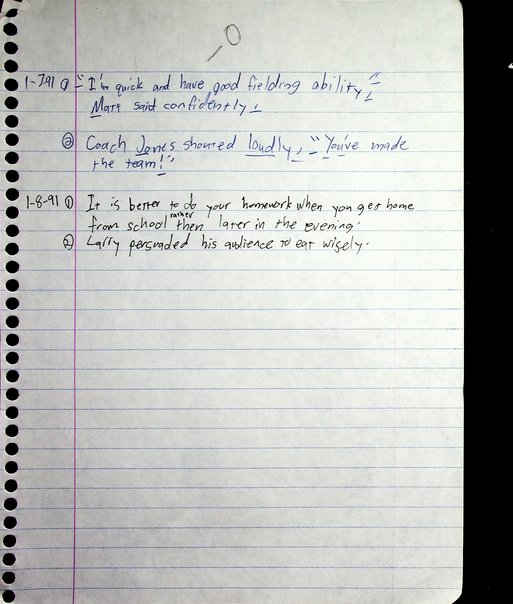 -0
1-7-91 ① "I'm quick and have good fielding ability,"
Matt said confidently.
② Coach Jones shouted loudly, "You've made
the team!"
1-8-91 ① It is better to do your homework when you get home
rather
from school then later in the evening.
② Larry persuaded his audience to eat wisely.